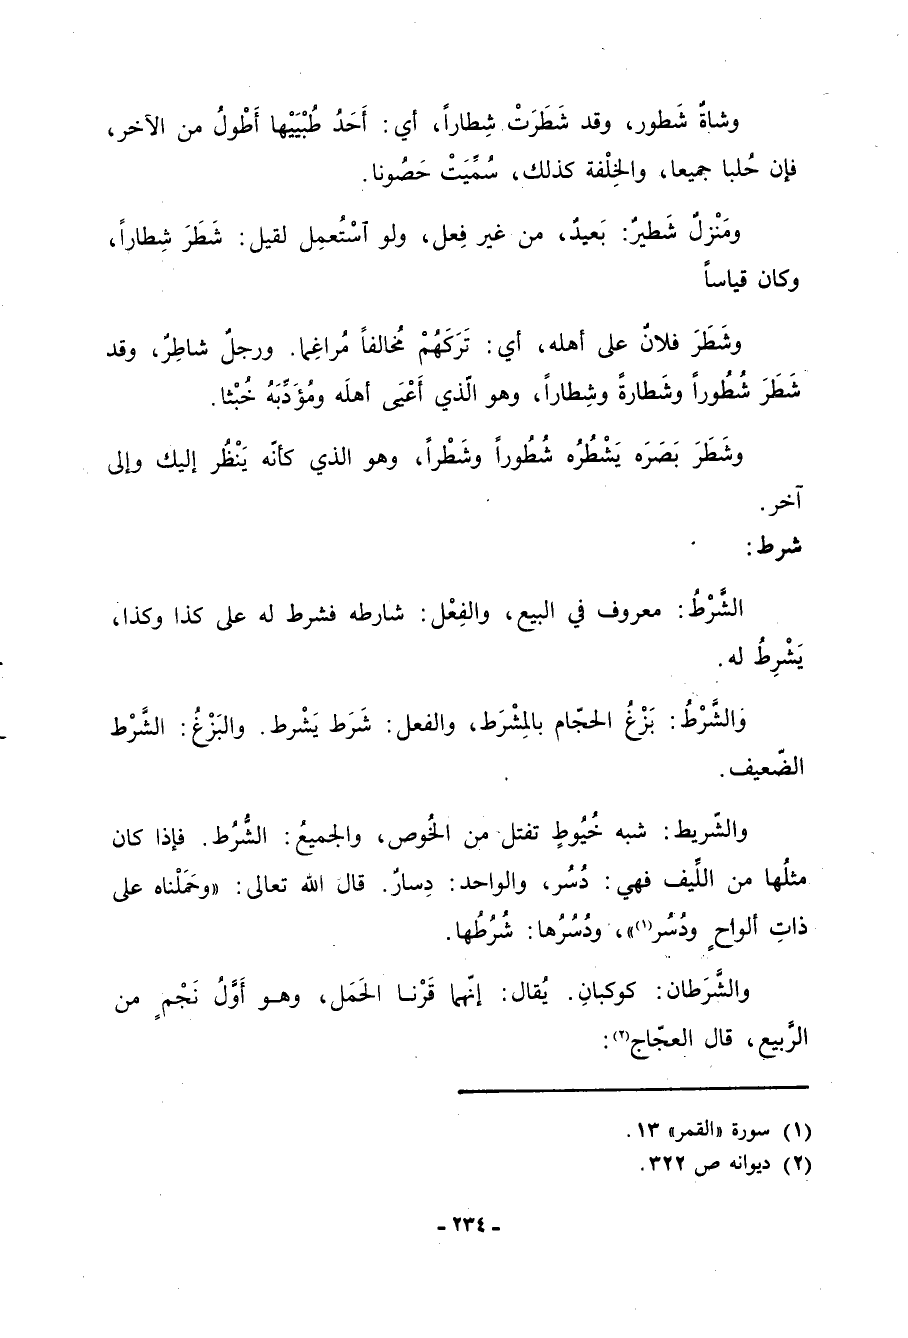 وشاةٌ شَطور، وقد شَطَرَتْ شِطاراً، أي: أَحَدُ طُبْيَيْها أَطْولُ من الآخر،
فإن حُلبا جميعا، والخِلْفة كذلك، سُمِّيَتْ حَصُونا.
ومَنْزلٌ شَطيرٌ: بَعيدٌ، من غير فِعل، ولو ٱسْتُعمِل لقيل: شَطَرَ شِطاراً،
وكان قياساً
وشَطَرَ فلانٌ على أهله، أي: تَرَكَهُمْ مُخالفاً مُراغِما. ورجلٌ شاطِرٌ، وقد
شَطَرَ شُطُوراً وشَطارةً وشِطاراً، وهو الّذي أَعْيَى أهلَه ومُؤَدِّبَهُ خُبْثا.
وشَطَرَ بَصَرَه يَشْطُرُه شُطُوراً وشَطْراً، وهو الذي كأنّه يَنْظُر إليك وإلى
آخر.
شرط:
الشَّرْطُ: معروف في البيع، والفِعْل: شارطه فشرط له على كذا وكذا،
يَشْرِطُ له.
وَالشَّرْطُ: بَزْغُ الحجّام بالمِشْرَط، والفعل: شَرَط يَشْرط. والبَزْغُ: الشَّرْط
الضّعيف.
والشّريط: شبه خُيُوطٍ تفتل من الخُوص، والجميعُ: الشُّرُط. فإذا كان
مثلُها من اللِّيف فهي: دُسُر، والواحد: دِسارٌ. قال الله تعالى: «وحَمَلْناه على
ذاتِ ألواحٍ ودُسُر(١)»، ودُسُرُها: شُرُطُها.
والشَّرَطان: كوكبانِ. يُقال: إنّهما قَرْنـا الحَمَل، وهـو أَوَّلُ نَجْمٍ من
الرَّبيع، قال العجّاج(٢):
(١) سورة «القمر» ١٣.
(٢) ديوانه ص ٣٢٢.
- ٢٣٤ -